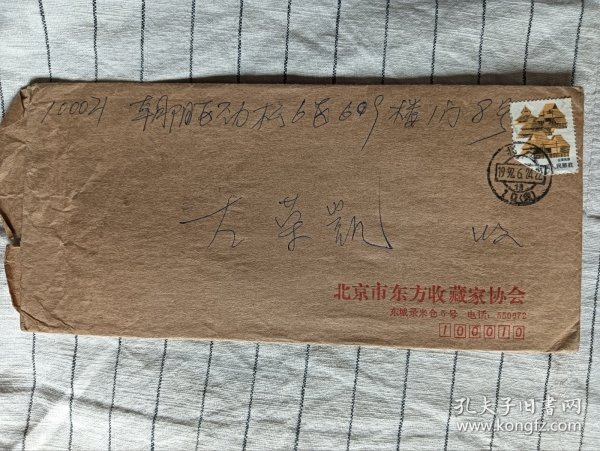 100021 朝阳区劲松6区609楼1门8号
北京
1992.6.24.22
左荣凯 收
北京市东方收藏家协会
东城录米仓5号 电话:550972
100010
孔夫子旧书网
www.kongfz.com